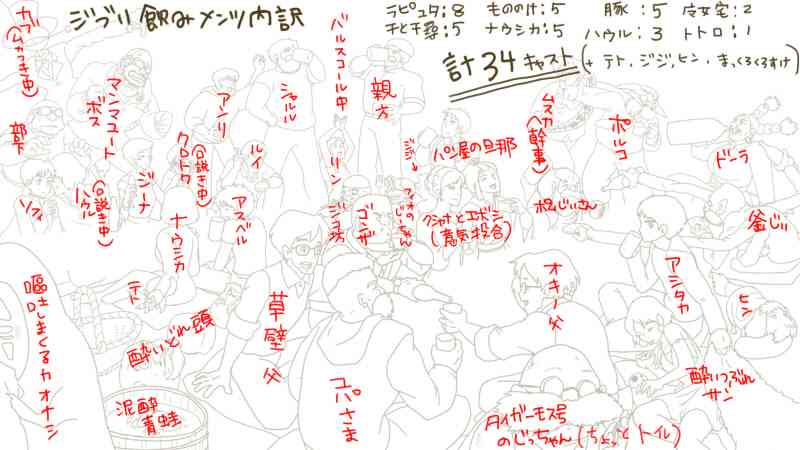 ジブリ飲みメンツ内訳
ラピュタ:8 もののけ:5 豚:5 魔女宅:2
千と千尋:5 ナウシカ:5 ハウル:3 トトロ:1
計34キャスト(+テト、ジジ,ヒン、まっくろくろすけ)
カブ
(ムカつき中)
部下
マンマユート
ボス
アンリ
シャルル
バルスコール中
親方
ムスカ
(幹事)
ポルコ
ドーラ
ソフィ
ハウル
(口説き中)
ジーナ
クロトワ
(口説き中)
ルイ
リン
ジジ→
パン屋の旦那
ナウシカ
アスベル
ジコ坊
ゴンザ
フィオの
じぃーちゃん
クシャナとエボシ
(意気投合)
ポムじいさん
釜じい
アシタカ
テト
嘔吐しまくるカオナシ
酔いどれ頭
泥酔
青蛙
草壁父
ユパさま
オキノ父
ヒン
酔いつぶれ
サン
タイガーモス号
のじっちゃん(ちょっとトイレ)